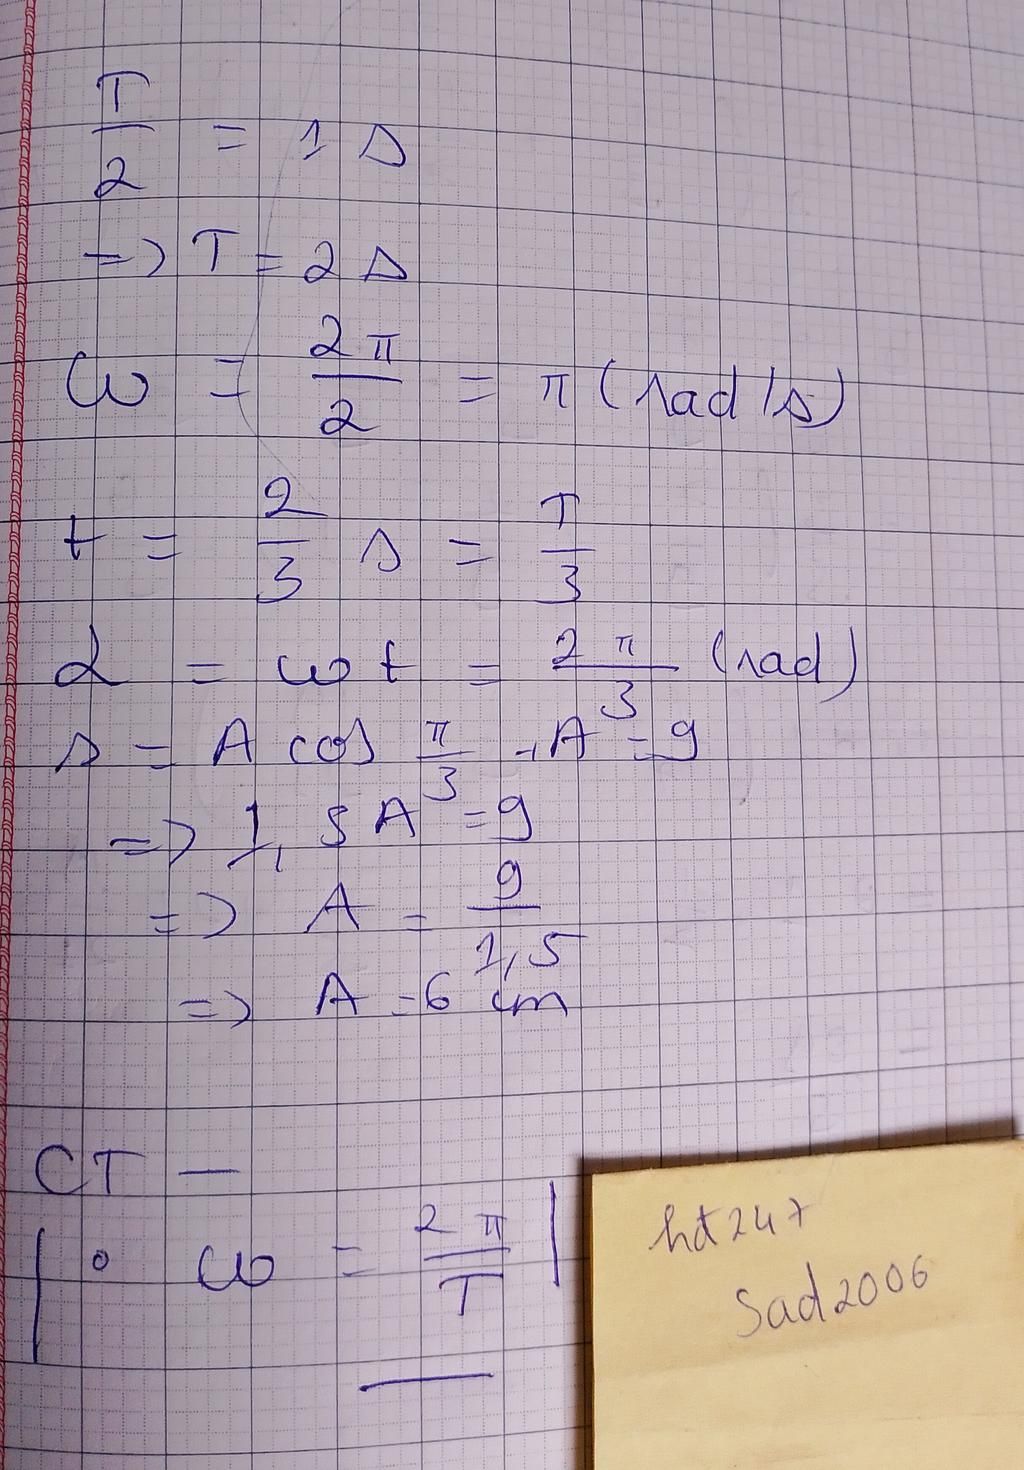 T/2 = 1 s
=> T = 2 s
ω = 2π/2 = π (rad/s)
t = 2/3 s = T/3
α = ωt = 2π/3 (rad)
s = A cos π/3 + A = 9
=> 1,5 A = 9
=> A = 9/1,5
=> A = 6 cm
CT —
| ° ω = 2π/T |
hdt247
Sad2006